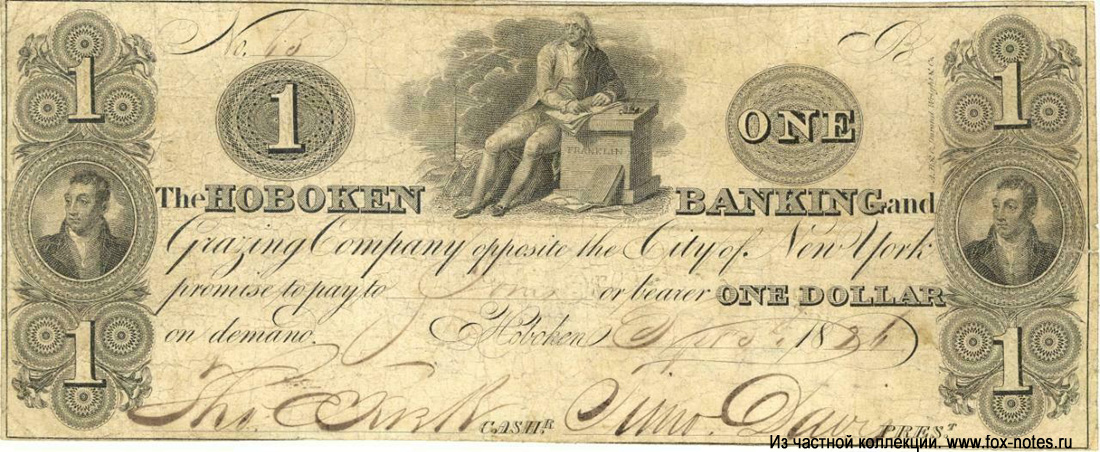 No.
B
1
1
1
ONE
1
FRANKLIN
The HOBOKEN BANKING and
Grazing Company opposite the City of New York
promise to pay to or bearer ONE DOLLAR
on demand. Hoboken 1826
1
1
CASHR. PREST.
Из частной коллекции. www.fox-notes.ru